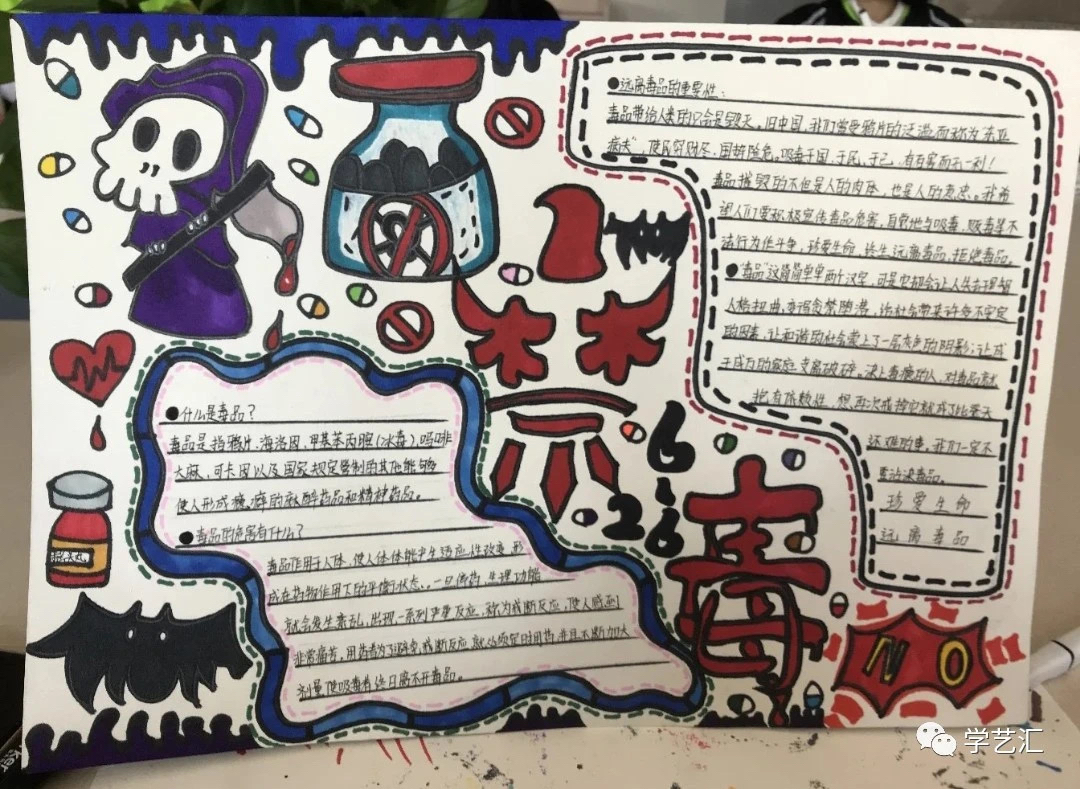 ●远离毒品的重要性:
毒品带给人类的只会是毁灭。旧中国,我们曾受鸦片的泛滥而称为"东亚
病夫",使民穷财尽、国势险危。吸毒于国、于民、于己,有百害而无一利!
毒品摧毁的不但是人的肉体,也是人的意志。我希
望人们要积极宣传毒品危害,自觉地与吸毒、贩毒等不
法行为作斗争,珍爱生命,终生远离毒品,拒绝毒品。
●"毒品"这简简单单两个汉字,可是它却会让人丧在理智
人格扭曲、变得贪婪堕落,给社会带来许多不安定
的因素,让和谐的社会蒙上了一层灰色的阴影;让成
千成万的家庭支离破碎。染上毒瘾的人,对毒品就
把有依赖性,想再次戒掉它就成了比登天
还难的事,我们一定不
要沾染毒品。
珍爱生命
远离毒品
禁
6·26
毒
●什么是毒品?
毒品是指鸦片、海洛因、甲基苯丙胺(冰毒)、吗啡
大麻、可卡因以及国家规定管制的其他能够
使人形成瘾癖的麻醉药品和精神药品。
●毒品的危害有什么?
毒品作用于人体,使人体体能产生适应性改变,形
成在药物作用下的平衡状态。一旦停药,生理功能
就会发生紊乱,出现一系列严重反应,称为戒断反应,使人感到
非常痛苦,用药者为了避免戒断反应,就必须定时用药,并且不断加大
剂量,使吸毒者终日离不开毒品。
NO
学艺汇